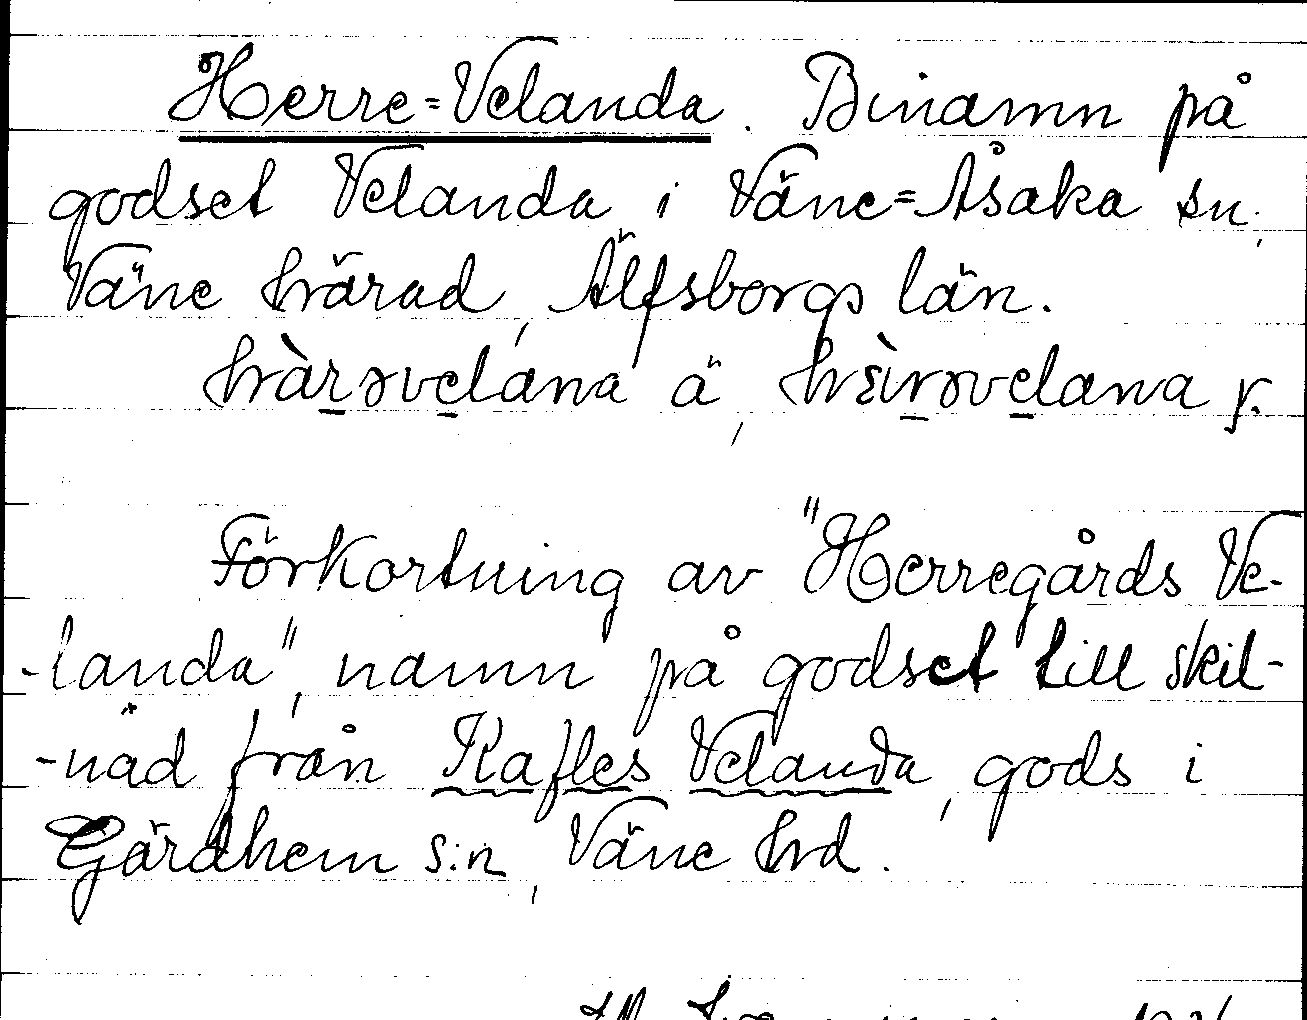 Herre=Velanda. Binamn på
godset Velanda i Väne=Åsaka sn,
Väne härad, Älfsborgs län.
hàrəvelana ä,
Förkortning av "Herregårds Ve-
-landa", namn på godset till skil-
-nad från Rafles Velanda, gods i
Gärdhem s:n, Väne hrd.